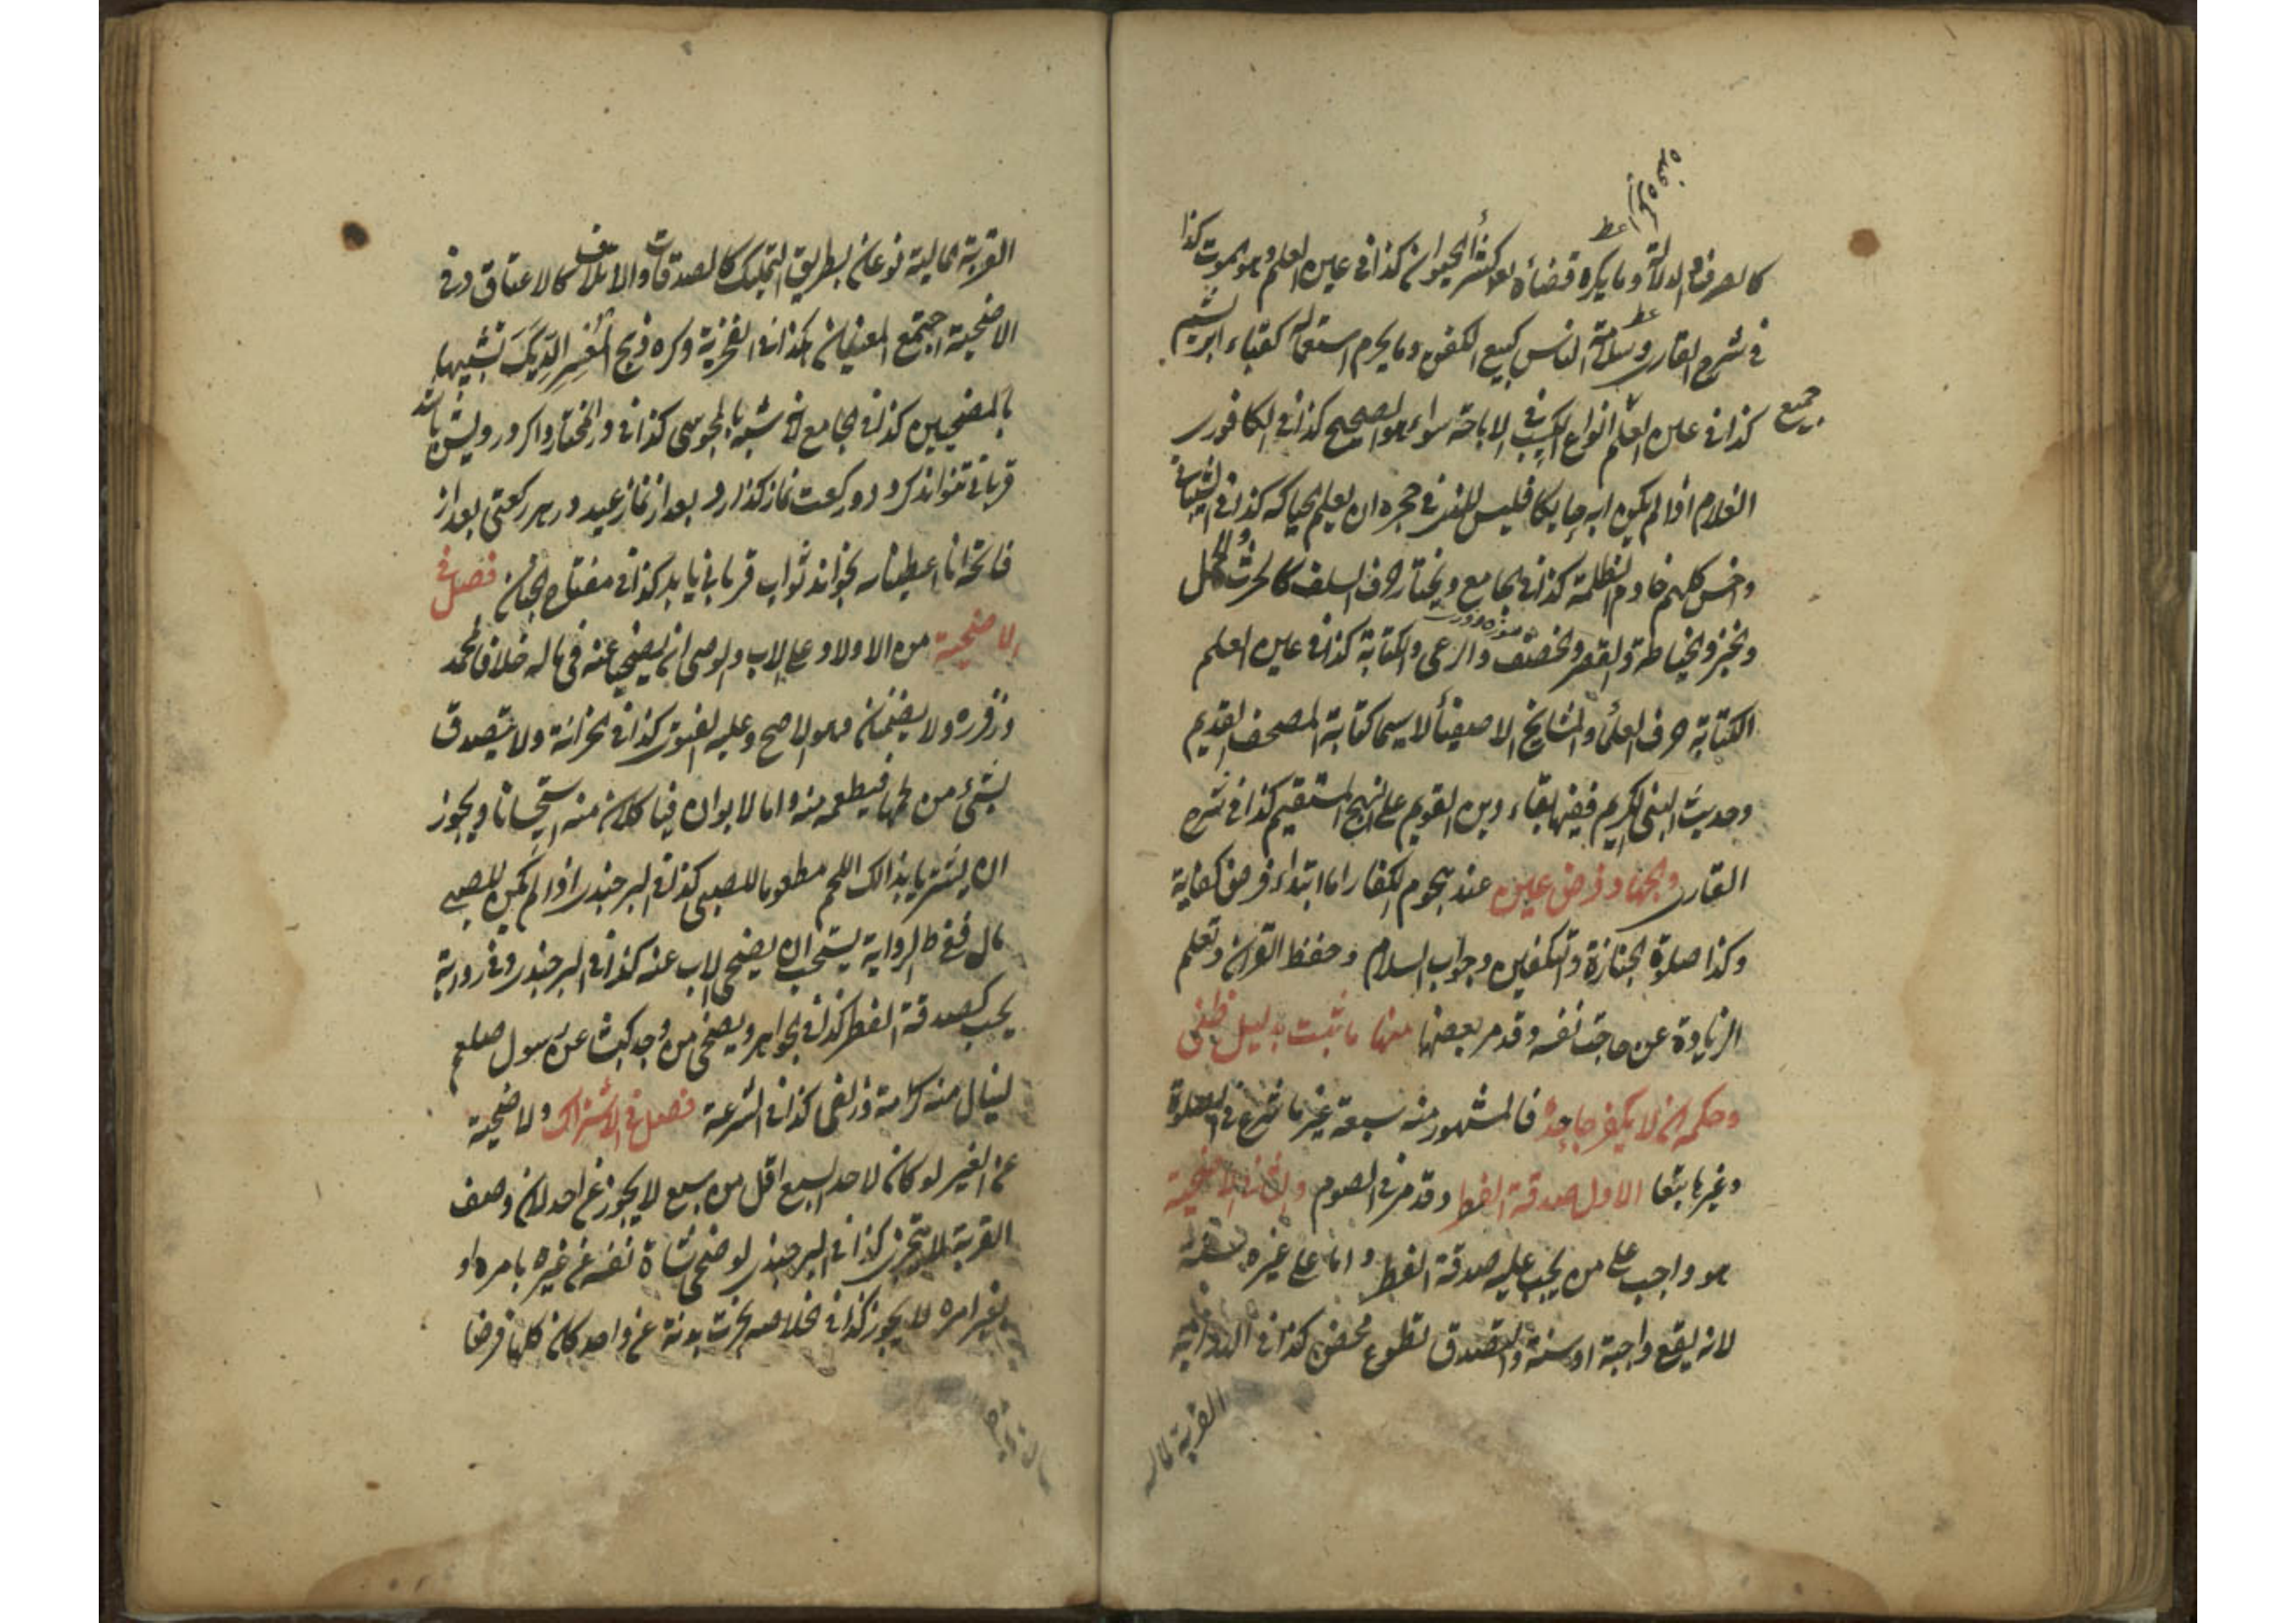 كالصرف والدلالة وما يكره قضاءه بعد كثرة الحيوان كذا في عين العلم وهو الموت كذا
في شرح القاري وسلامة الناس كبيع الكفن وما يحرم استعماله كقباء ابريشم
جميع
كذا في عين العلم انواع الكسب في الاباحة سواء هو الصحيح كذا في الكافوري
الغلام اذا لم يكن ابوه حايكا فليس للذي في حجره ان يعلم الحياكة كذا في
واخس كلهم خادم الظلمة كذا في الجامع ويختار حرف السلف كالحرث والحمل
والخبز والخياطة والقصر والخصف والرعي والكتابة كذا في عين العلم
الكتابة حرف العلماء والمشايخ الاصفياء لا سيما كتابة المصحف القديم
وحديث النبي الكريم ففيها بقاء دين القويم على النهج المستقيم كذا في شرح
القاري والجهاد فرض عين عند هجوم الكفار اما ابتداء فرض كفاية
وكذا صلوة الجنازة والتكفين وجواب السلام وحفظ القران وتعلم
الزيادة عن حاجة نفسه وقد مر بعضها منها ما ثبت بدليل ظني
وحكمه ان لا يكفر جاحده فالمشهور منه سبعة غير ما شرع في الصلوة
وغيرها تبعا الاول صدقة الفطر وقد مر في الصوم والثاني الاضحية
هو واجب على من يجب عليه صدقة الفطر واما على غيره
لانه يقع واجبة او سنة والتصدق تطوع محض كذا في
القربة المالية
القربة المالية نوعان بطريق التمليك كالصدقات والاتلاف كالاعتاق وفي
الاضحية اجتمع المعنيان كذا في الفخرية وكره ذبح المعسر الديك تشبيها
بالمضحيين كذا في الجامع لانه شبه بالمجوسي كذا في در المختار واكر درويش باشد
قرباني نتواند كرد دو ركعت نماز كذارد بعد از نماز عيد در هر ركعتي بعد از
فاتحه انا اعطيناك بخواند ثواب قرباني يابد كذا في مفتاح الجنان فصل في
الاضحية من الاولاد على الاب والوصي ان يضحيا عنه في ماله خلافا لمحمد
وزفر ره ولا يضمنان وهو الاصح وعليه الفتوى كذا في الخزانة ولا يتصدق
بشئ من لحمها فيطعمه منه واما الابوان فياكلان منه استحسانا ويجوز
ان يشتريا بذالك اللحم مطعوما للصبي كذا في البرجندي اذا لم يكن للصبي
مال ففي ظ الرواية يستحب ان يضحي الاب عنه كذا في البرجندي وفي رواية
يجب كصدقة الفطر كذا في الجواهر ويضحي من وجد كبشا عن رسول صلعم
لينال منه كرامة وزلفى كذا في الشرعة فصل في الاشتراك والاضحية
عن الغير لو كان لاحد السبع اقل من سبع لا يجوز عن احد لان وصف
القربة لا يتجزى كذا في البرجندي لو ضحى شاة نفسه عن غيره بامره او
بغير امره لا يجوز كذا في خلاصه نحرت بدنة عن واحد كان كلها فرضا